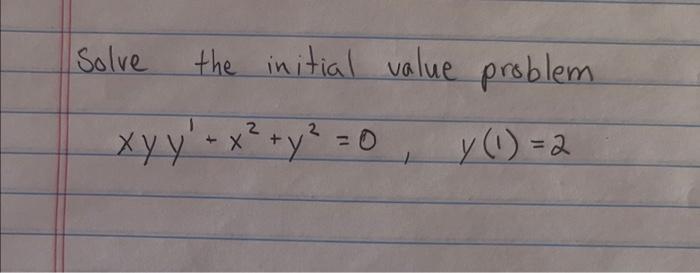 Solve the initial value problem
xyy' + x² + y² = 0 , y(1) = 2